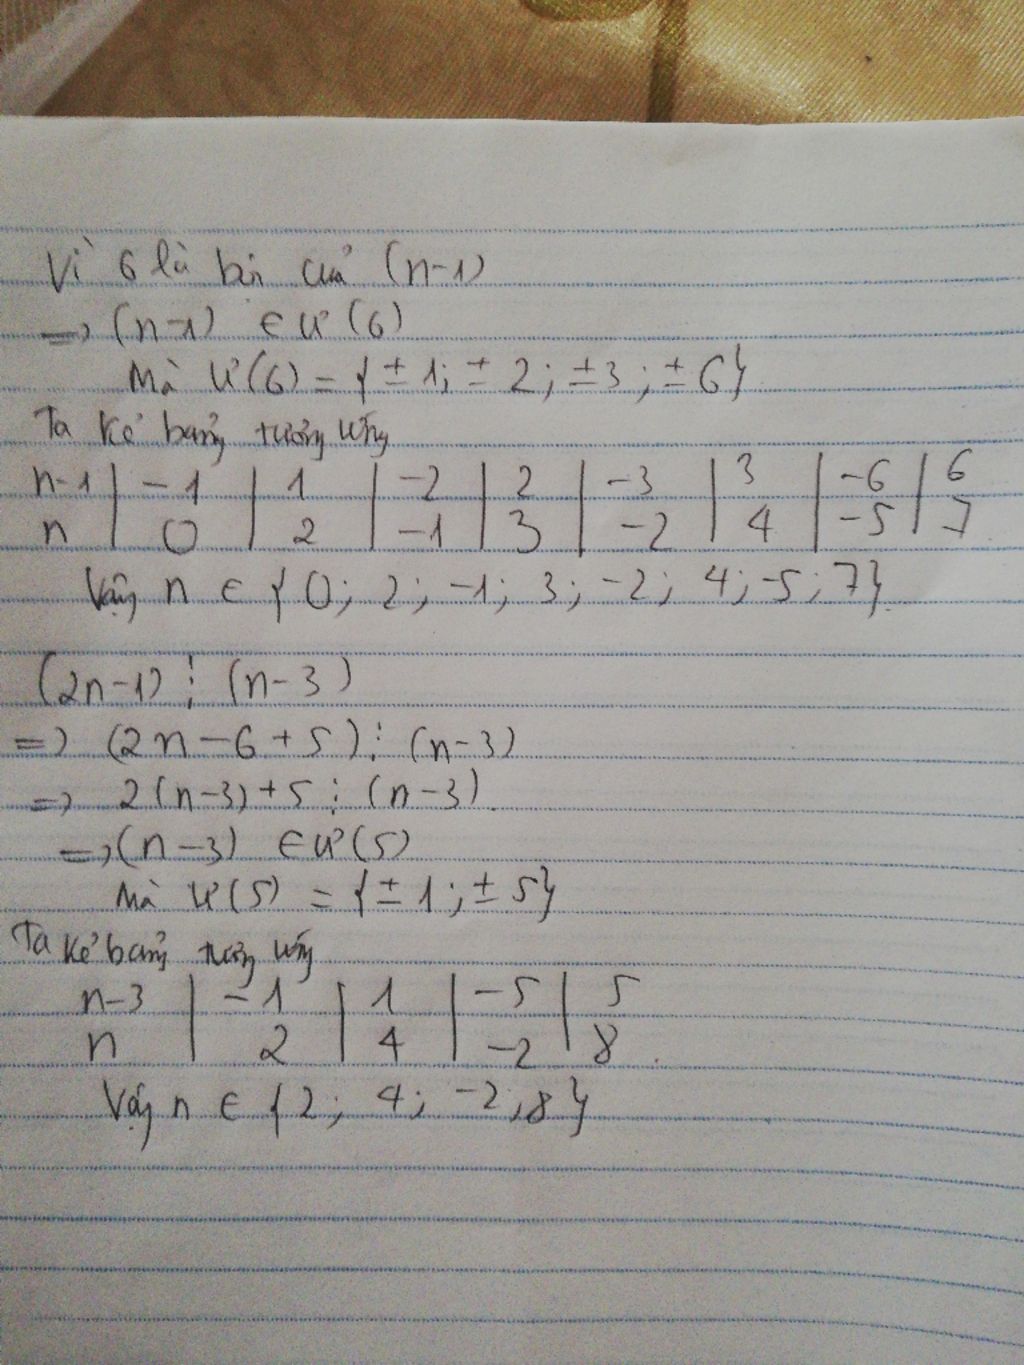 Vì 6 là bội của (n-1)
=> (n-1) ∈ Ư(6)
Mà Ư(6) = {±1; ±2; ±3; ±6}
Ta kẻ bảng tương ứng
n-1 | -1 | 1 | -2 | 2 | -3 | 3 | -6 | 6
n | 0 | 2 | -1 | 3 | -2 | 4 | -5 | 7
Vậy n ∈ {0; 2; -1; 3; -2; 4; -5; 7}.
(2n-1) ⋮ (n-3)
=> (2n-6+5) ⋮ (n-3)
=> 2(n-3)+5 ⋮ (n-3).
=> (n-3) ∈ Ư(5)
Mà Ư(5) = {±1; ±5}
Ta kẻ bảng tương ứng
n-3 | -1 | 1 | -5 | 5
n | 2 | 4 | -2 | 8.
Vậy n ∈ {2; 4; -2; 8}